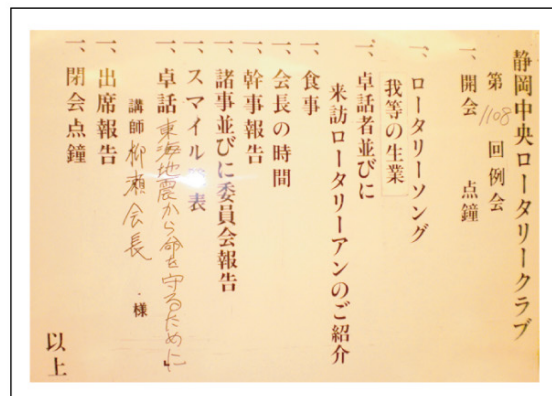 静岡中央ロータリークラブ
第1108回例会
一、開会 点鐘
一、ロータリーソング
我等の生業
一、卓話者並びに
来訪ロータリーアンのご紹介
一、食事
一、会長の時間
一、幹事報告
一、諸事並びに委員会報告
一、スマイル 表
一、卓話 東海地震から命を守るために
講師 柳瀬会長 様
一、出席報告
一、閉会点鐘
以上